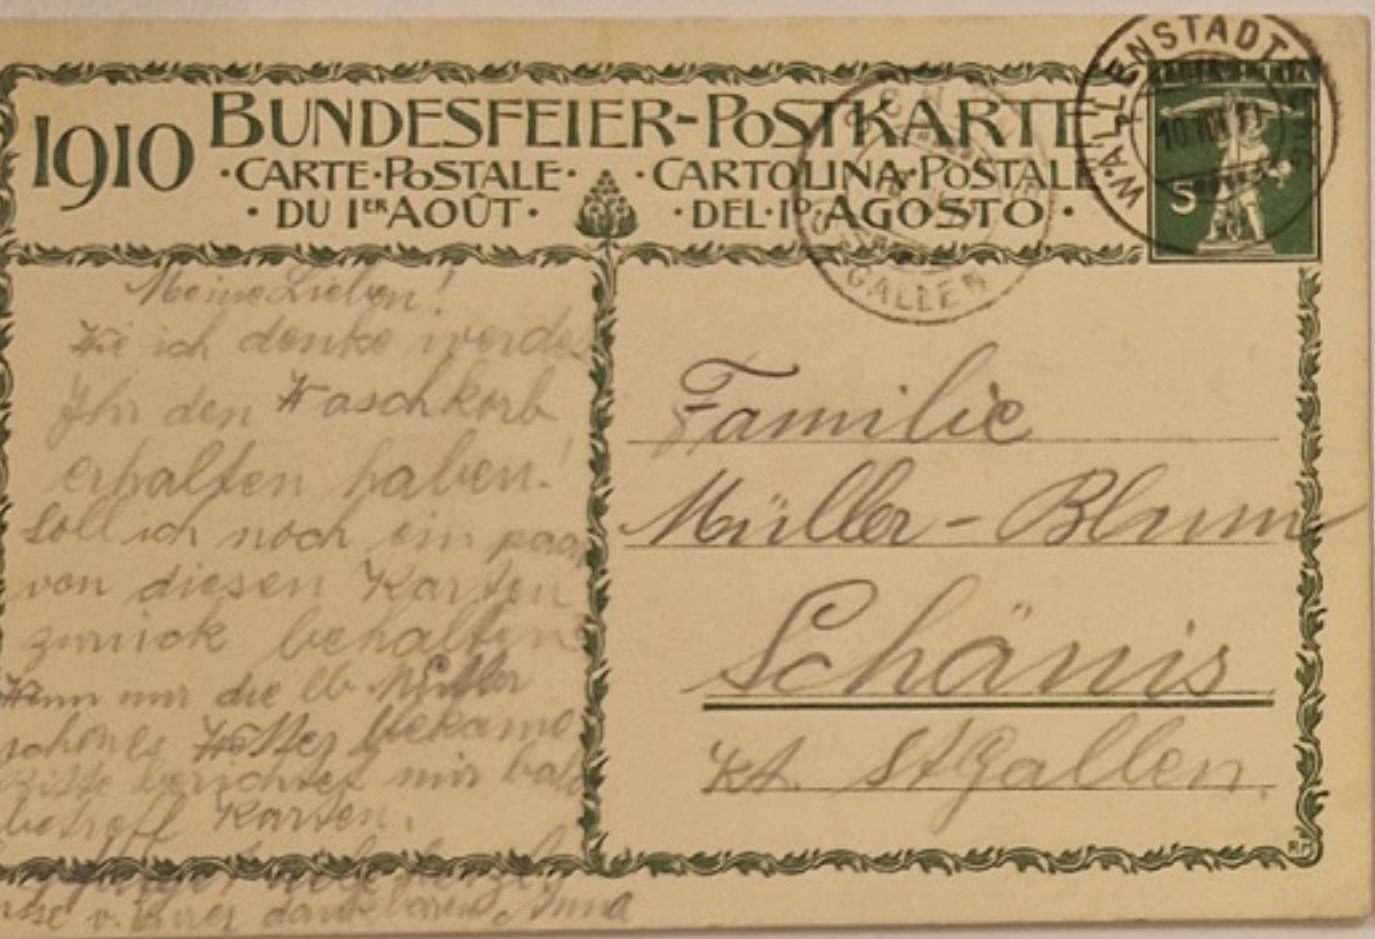 1910 BUNDESFEIER-POSTKARTE
·CARTE·POSTALE· ·CARTOLINA·POSTALE
·DU 1ER AOÛT· ·DEL·1º AGOSTO·
WALLENSTADT
5
GALLEN
Meine Lieben!
Wie ich denke werdet
Ihr den Waschkorb
erhalten haben!
Soll ich noch ein paar
von diesen Karten
zurück behalten?
Wenn nur die lb. Mutter
schönes Wetter bekäme
Bitte berichtet mir bald
betreff Karten.
herzl.
v. Eurer dankbaren Anna
Familie
Müller-Blum
Schänis
Kt. St Gallen.
RM